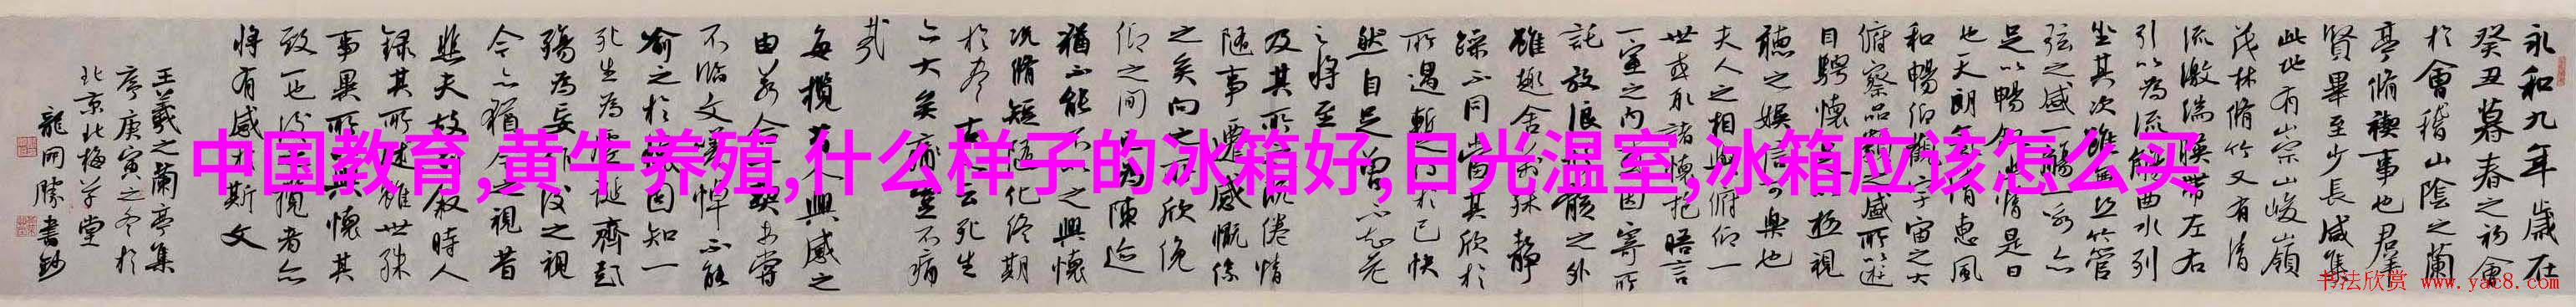 永和九年歲在
癸丑暮春之初會
於會稽山陰之蘭
亭脩禊事也群
賢畢至少長咸集
此地有崇山峻嶺
茂林脩竹又有清
流激湍映帶左右
引以為流觴曲水列
坐其次雖無絲竹管
弦之盛一觴一詠亦
足以暢敘幽情是日
也天朗氣清惠風
和暢仰觀宇宙之大
俯察品類之盛所以遊
目騁懷足以極視
聽之娛信可樂也
夫人之相與俯仰一
世或取諸懷抱晤言
一室之內或因寄所
託放浪形骸之外
雖趣舍萬殊靜
躁不同當其欣於
所遇暫得於己快
然自足曾不知老
之將至
及其所之既倦情
隨事遷感慨係
之矣向之所欣俛
仰之間以為陳迹
猶不能不以之興懷
況脩短隨化終期
於盡古人云死生
亦大矣豈不痛
哉
每攬昔人興感之
由若合一契未嘗
不臨文嗟悼不能
喻之於懷固知一
死生為虛誕齊彭
殤為妄作後之視
今亦猶今之視昔
悲夫故列敘時人
錄其所述雖世殊
事異所以興懷其
致一也後之攬者亦
將有感於斯文
王羲之蘭亭集
序庚寅之冬於
北京北梅草堂
龍開勝書鈔
中国教育,黄牛养殖,什么样子的冰箱好,日光温室,冰箱应该怎么买
书法欣赏 www.yac8.com